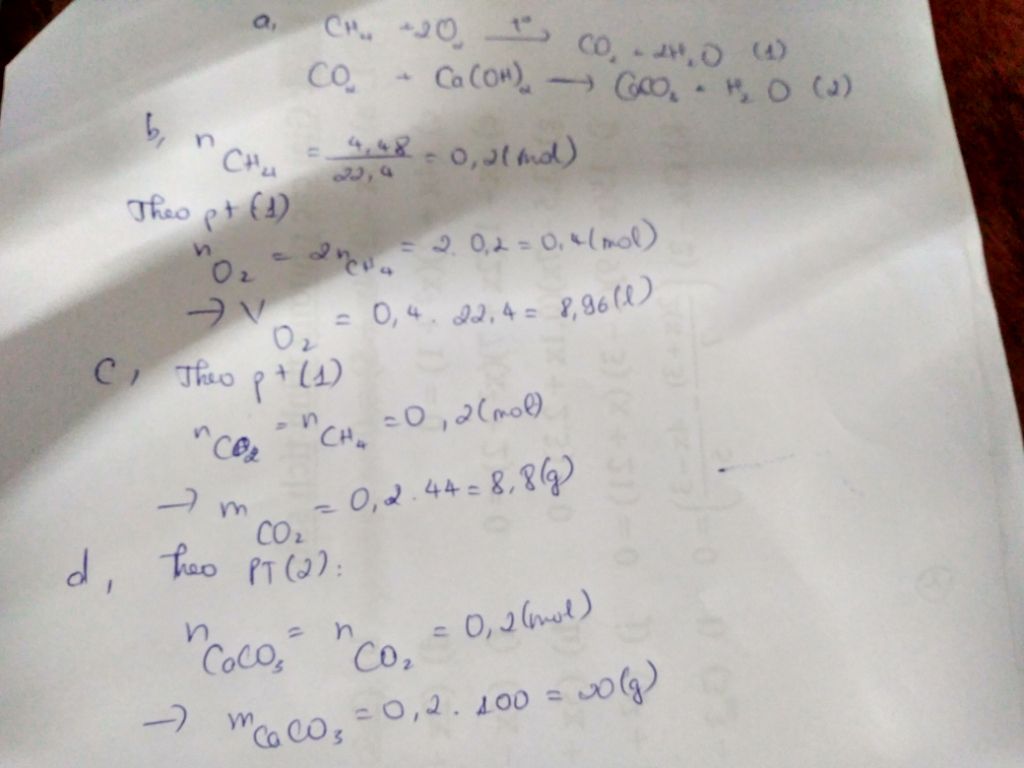 a, CH₄ + 2O₂ —t°→ CO₂ + 2H₂O (1)
CO₂ + Ca(OH)₂ → CaCO₃ + H₂O (2)
b, nCH₄ = 4,48/22,4 = 0,2(mol)
Theo pt (1)
nO₂ = 2nCH₄ = 2. 0,2 = 0,4(mol)
→ VO₂ = 0,4. 22,4 = 8,96(l)
c, Theo pt (1)
nCO₂ = nCH₄ = 0,2(mol)
→ mCO₂ = 0,2.44 = 8,8(g)
d, Theo PT(2):
nCaCO₃ = nCO₂ = 0,2(mol)
→ mCaCO₃ = 0,2. 100 = 20(g)